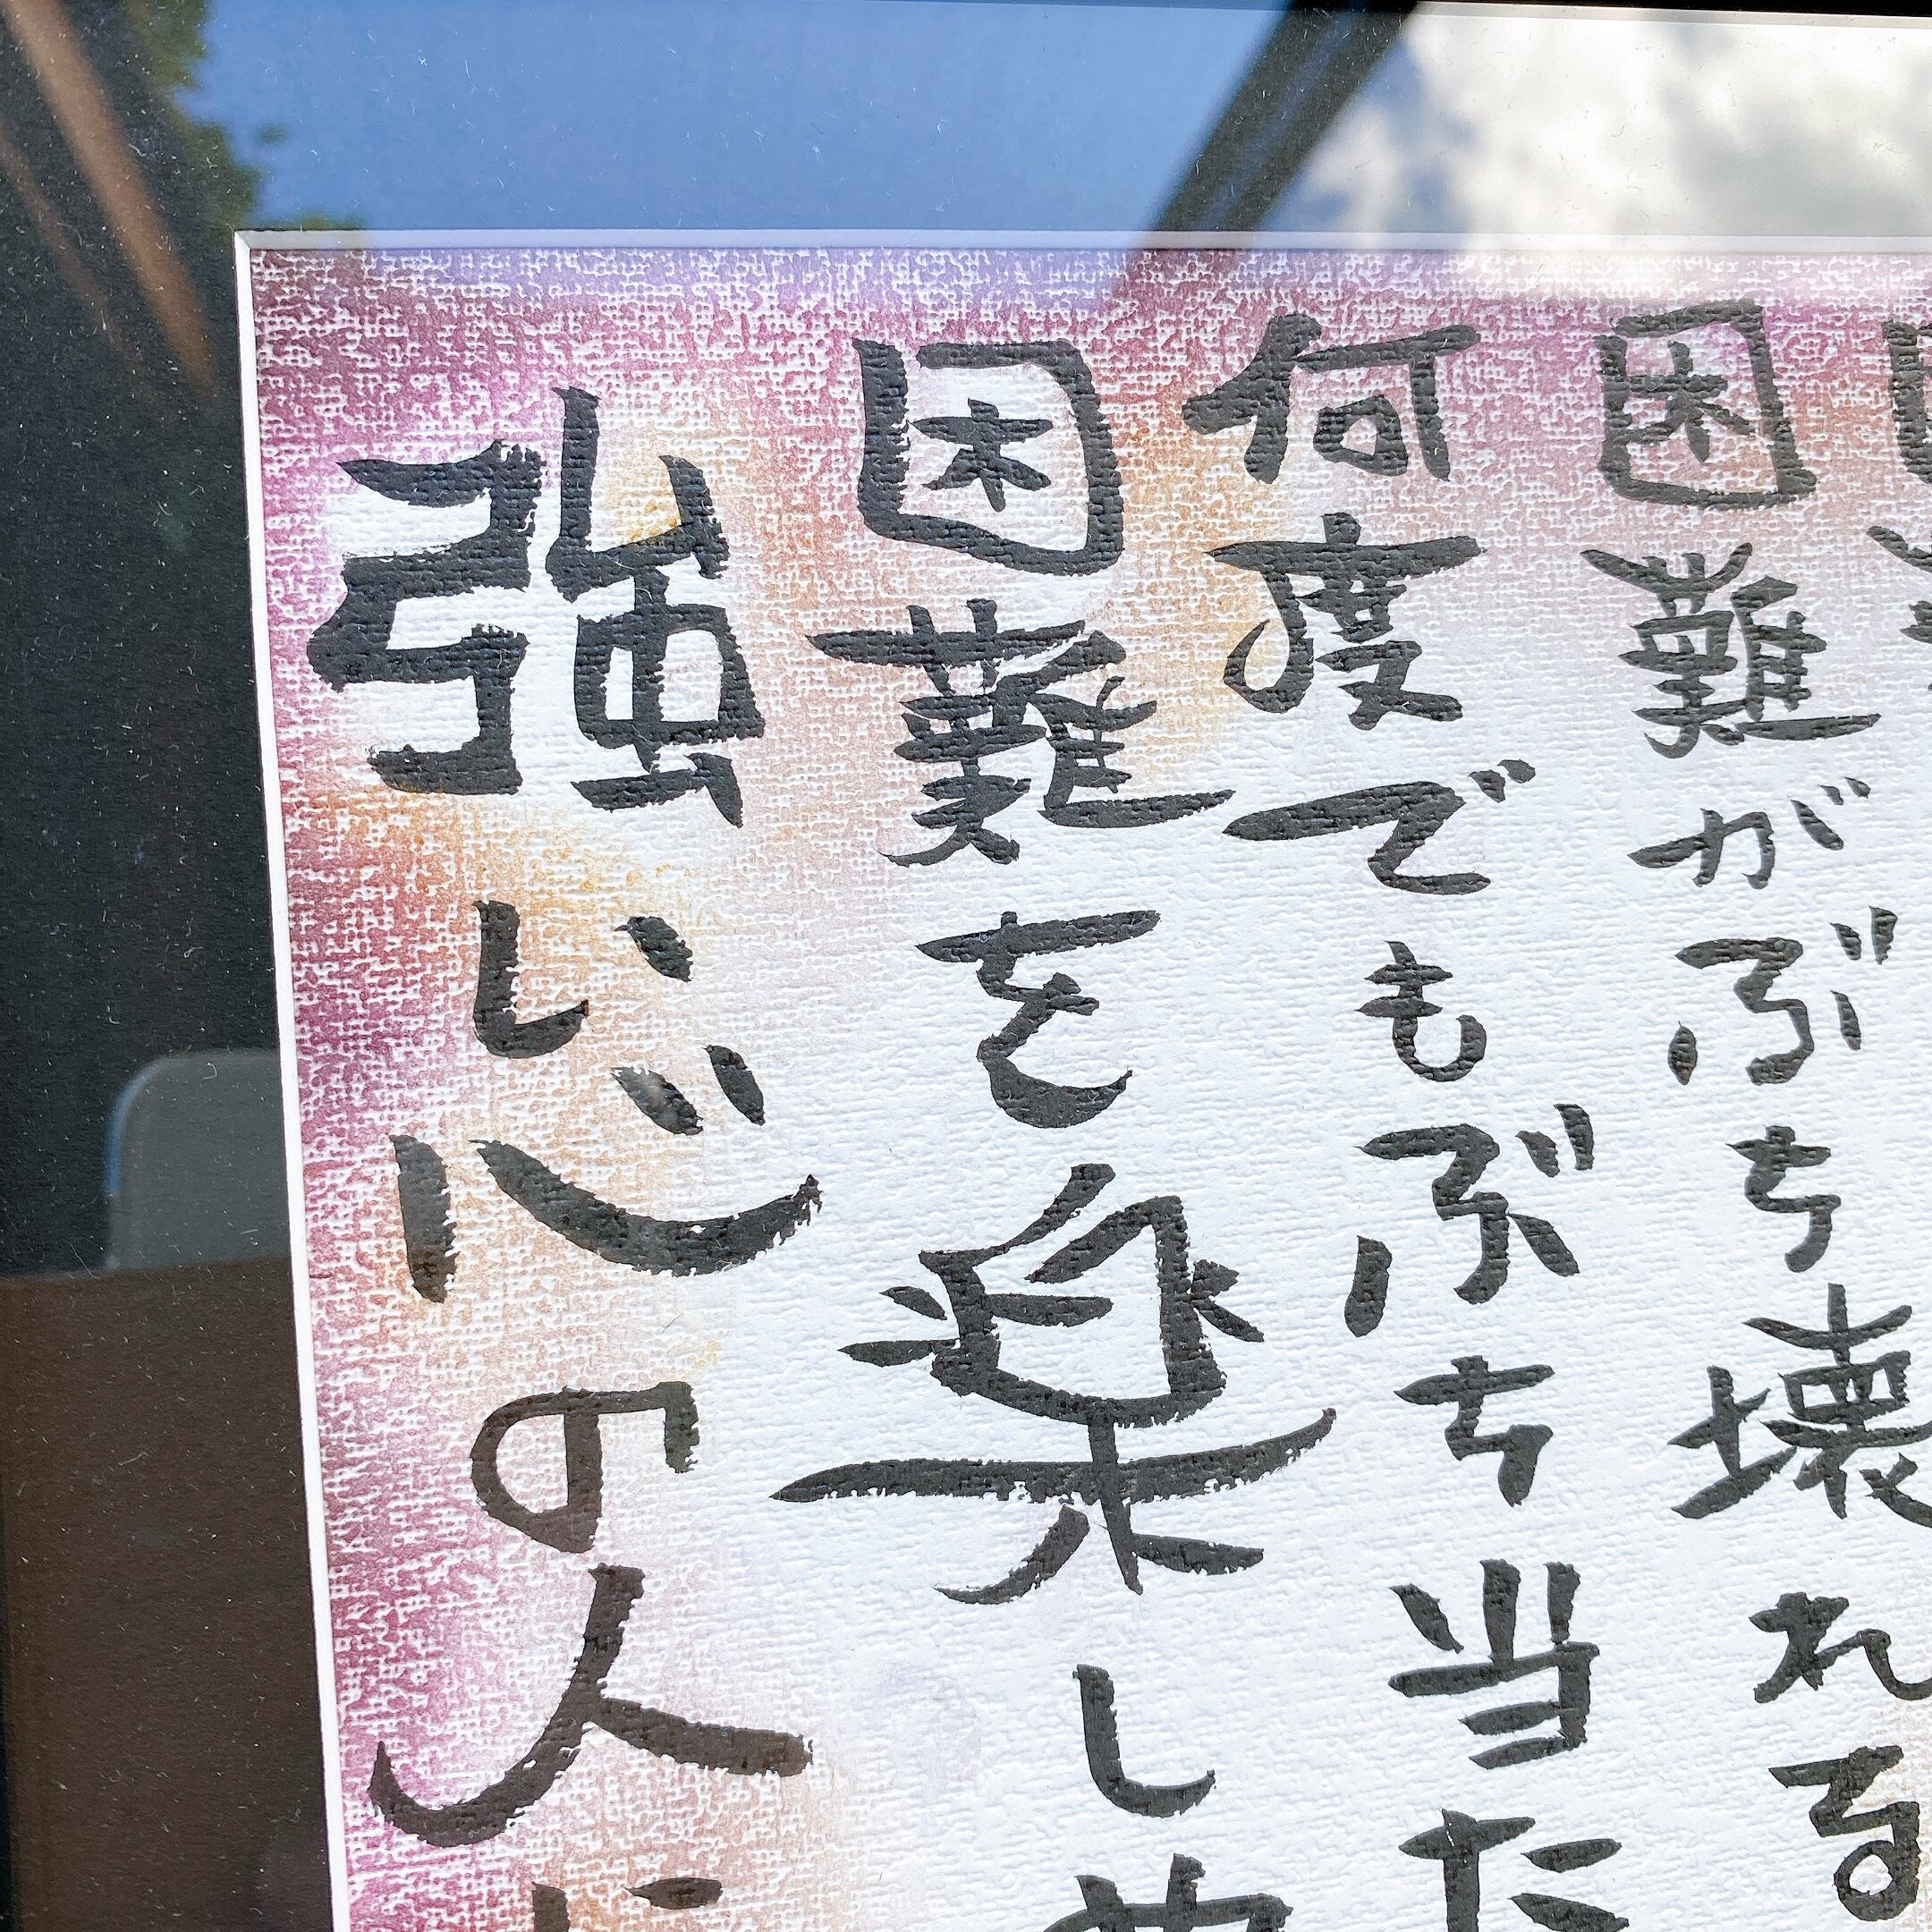 困難がぶち壊れる
何度でもぶち当た
困難を楽しめ
強い心の人に